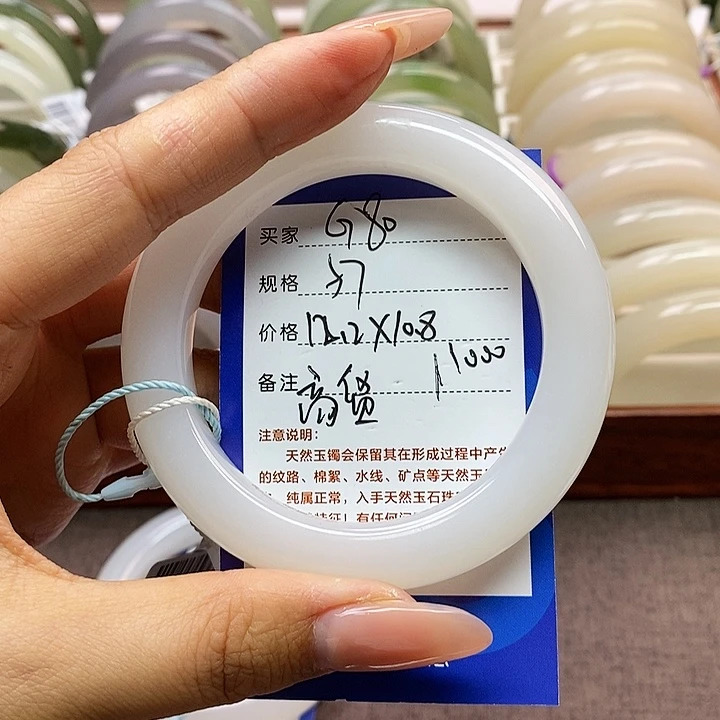 买家 G80
规格 57
价格 12.12×10.8
备注 高货 11000
注意说明:
天然玉镯会保留其在形成过程中产
的纹路、棉絮、水线、矿点等天然玉
纯属正常，入手天然玉石珠
特征！有任何